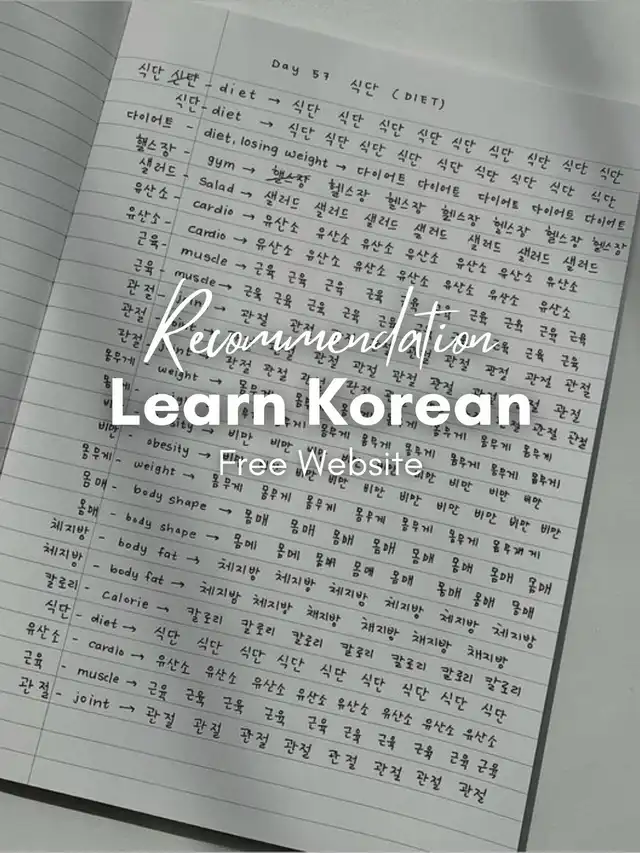 Day 57 식단 (DIET)
식단 - diet → 식단 식단 식단 식단 식단 식단 식단 식단 식단
식단 - diet → 식단 식단 식단 식단 식단 식단 식단 식단 식단
다이어트 - diet, losing weight → 다이어트 다이어트 다이어트 다이어트 다이어트
헬스장 - gym → 헬스장 헬스장 헬스장 헬스장 헬스장 헬스장 헬스장
샐러드 - salad → 샐러드 샐러드 샐러드 샐러드 샐러드 샐러드 샐러드
유산소 - cardio → 유산소 유산소 유산소 유산소 유산소 유산소 유산소
유산소 - cardio → 유산소 유산소 유산소 유산소 유산소 유산소 유산소
근육 - muscle → 근육 근육 근육 근육 근육 근육 근육 근육 근육
근육 - muscle → 근육 근육 근육 근육 근육 근육
관절 - joint → 관절 관절 관절 관절
관절 관절 관절 관절 관절 관절 관절 관절
관절 관절 관절 관절
Recommendation
Learn Korean
Free Website
몸무게 - weight → 몸무게 몸무게 몸무게 몸무게
비만 비만 비만 비만 비만 비만
비만 - obesity → 비만 비만 비만 비만 비만 비만
몸무게 - weight → 몸무게 몸무게 몸무게 몸무게 몸무게 몸무게
몸매 - body shape → 몸매 몸매 몸매 몸매 몸매 몸매 몸매 몸매
몸매 - body shape → 몸매 몸매 몸매 몸매 몸매 몸매 몸매 몸매
체지방 - body fat → 체지방 체지방 체지방 체지방 체지방 체지방
체지방 - body fat → 체지방 체지방 체지방 체지방 체지방 체지방
칼로리 - calorie → 칼로리 칼로리 칼로리 칼로리 칼로리 칼로리 칼로리
식단 - diet → 식단 식단 식단 식단 식단 식단 식단 식단 식단
유산소 - cardio → 유산소 유산소 유산소 유산소 유산소 유산소 유산소 유산소
근육 - muscle → 근육 근육 근육 근육 근육 근육 근육 근육 근육
관절 - joint → 관절 관절 관절 관절 관절 관절 관절 관절